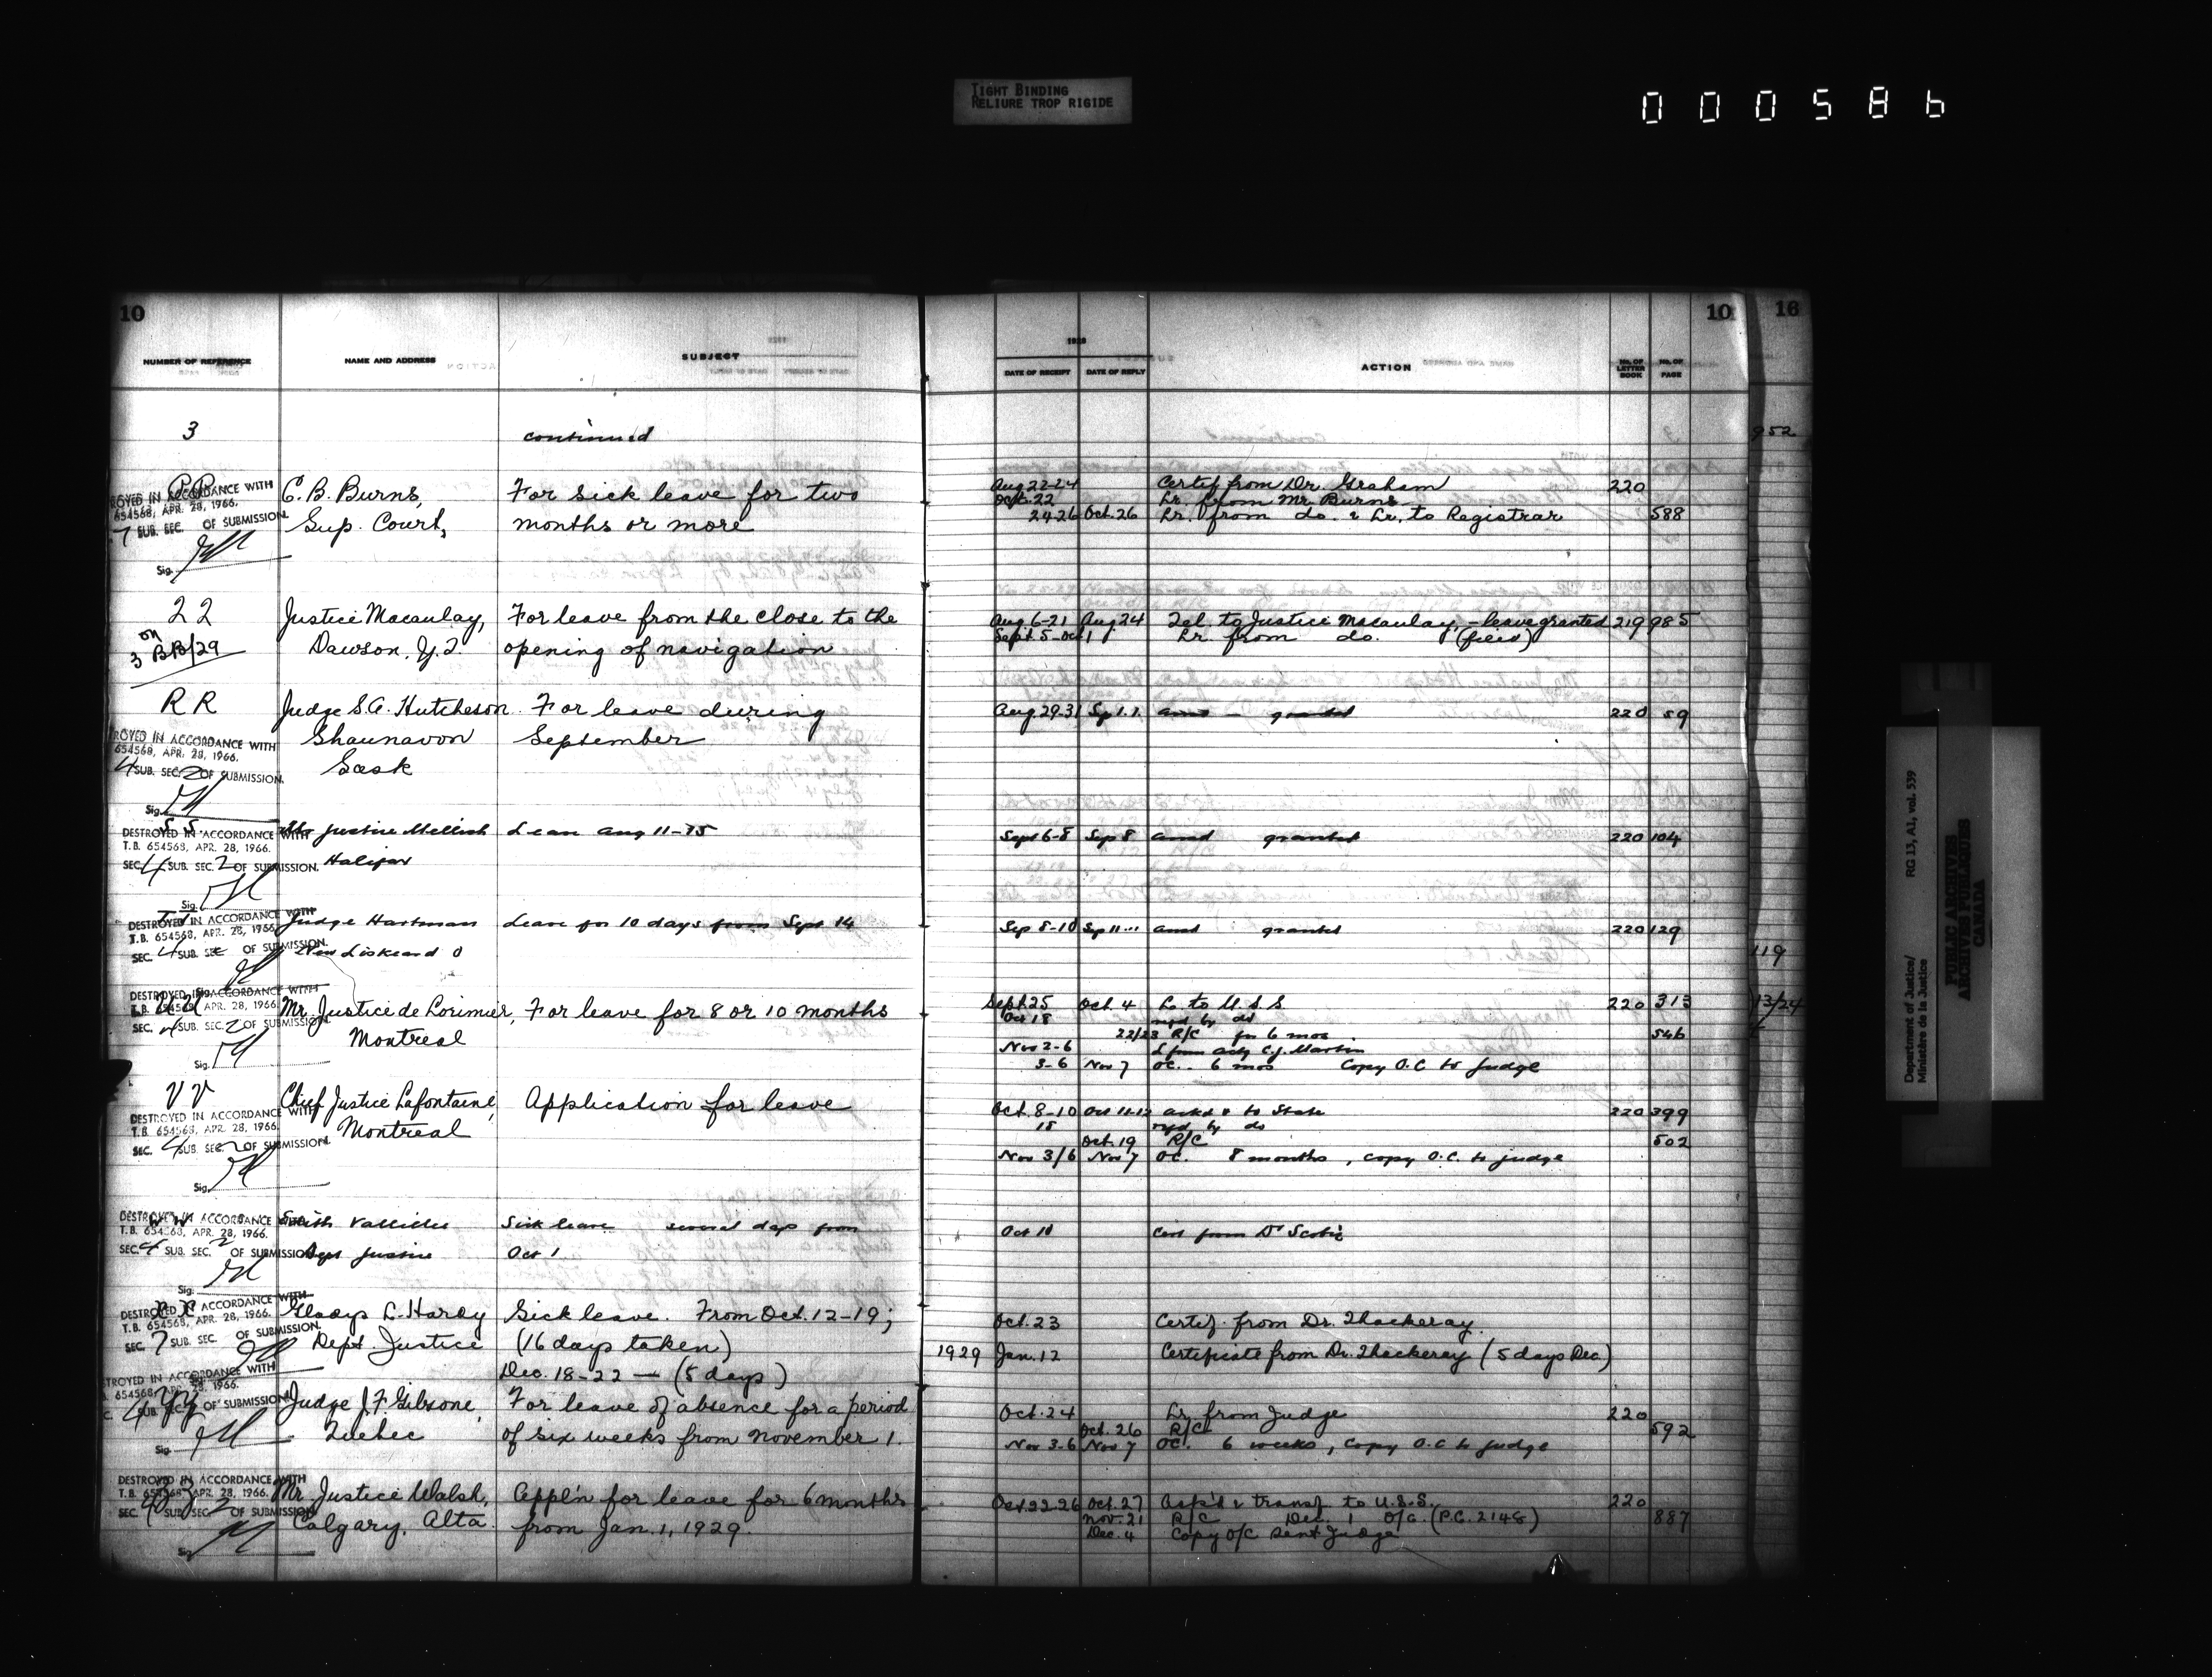 TIGHT BINDING
RELIURE TROP RIGIDE
000586
10
NUMBER OF REFERENCE NAME AND ADDRESS SUBJECT
3 continued
PP C. B. Burns, For sick leave for two
ROYED IN ACCORDANCE WITH
654568, APR. 28, 1966.
7 SUB. SEC. OF SUBMISSION.
Sup. Court, months or more
Sig.
22 Justice Macaulay, For leave from the close to the
on
3 BB/29 Dawson, Y.T. opening of navigation
RR Judge S.A. Hutcheson For leave during
ROYED IN ACCORDANCE WITH
654568, APR. 28, 1966.
4 SUB. SEC. 2 OF SUBMISSION.
Shaunavon September
Sask
Sig.
SS Mr Justice Mellish Leave Aug 11-15
DESTROYED IN ACCORDANCE WITH
T.B. 654568, APR. 28, 1966.
SEC. 4 SUB. SEC. 2 OF SUBMISSION.
Halifax
Sig.
Judge Hartman Leave for 10 days from Sept 14
DESTROYED IN ACCORDANCE WITH
T.B. 654568, APR. 28, 1966.
SEC. 4 SUB. SEC. OF SUBMISSION.
New Liskeard O
Sig.
DESTROYED IN ACCORDANCE WITH
T.B. 654568, APR. 28, 1966.
SEC. 4 SUB. SEC. 2 OF SUBMISSION.
Mr. Justice de Lorimier, For leave for 8 or 10 months
Montreal
Sig.
VV Chief Justice Lafontaine, Application for leave
DESTROYED IN ACCORDANCE WITH
T.B. 654568, APR. 28, 1966.
SEC. 4 SUB. SEC. 2 OF SUBMISSION.
Montreal
Sig.
WW Vallillee Sick leave several days from
DESTROYED IN ACCORDANCE WITH
T.B. 654568, APR. 28, 1966.
SEC. 4 SUB. SEC. 2 OF SUBMISSION
Dept Justice Oct 1
Sig.
Gladys L. Hardy Sick leave. From Oct. 12-19;
DESTROYED IN ACCORDANCE WITH
T.B. 654568, APR. 28, 1966.
SEC. 7 SUB. SEC. OF SUBMISSION.
Dept. Justice (16 days taken)
Dec. 18-22 — (5 days)
TROYED IN ACCORDANCE WITH
654568, APR. 28, 1966.
4 SUB. SEC. OF SUBMISSION
YY Judge J.F. Gibsone, For leave of absence for a period
Quebec of six weeks from November 1.
Sig.
DESTROYED IN ACCORDANCE WITH
T.B. 654568, APR. 28, 1966.
SEC. 4 SUB. SEC. 2 OF SUBMISSION
Mr. Justice Walsh, Appl'n for leave for 6 months
Calgary, Alta. from Jan. 1, 1929.
Sig.
10 16
1928
DATE OF RECEIPT DATE OF REPLY ACTION No. OF LETTER BOOK No. OF PAGE
952
Aug 22-24 Certif from Dr. Graham 220
Oct. 22 Lr. from Mr. Burns
24-26 Oct. 26 Lr. from do. & Lr. to Registrar 588
Aug 6-21 Aug 24 Tel. to Justice Macaulay, - leave granted 219 985
Sept. 5- Oct 1 Lr. from do. (filed)
Aug. 29-31 Sp 1. 1. ansd — granted 220 59
Sept 6-8 Sep 8 ansd granted 220 104
Sep 8-10 Sep 11 ansd granted 220 129
119
Sept. 25 Oct. 4 L to U.S.S 220 313 13/24
Oct 18 by do
22/23 R/C for 6 mos 546
Nov 2-6 L from actg C.J. Martin
3-6 Nov 7 OC. 6 mos Copy O.C to Judge
Oct. 8-10 Oct 11-12 ackd & to State 220 399
15 by do
Oct. 19 R/C 502
Nov 3/6 Nov 7 OC. 8 months, copy O.C. to judge
Oct 10 Cert from Dr Scobie
Oct. 23 Certif. from Dr. Thackeray.
1929 Jan. 12 Certificate from Dr. Thackeray (5 days Dec)
Oct. 24 Lr. from Judge 220
Oct. 26 R/C 592
Nov 3-6 Nov 7 OC. 6 weeks, copy O.C to judge
Oct. 22-26 Oct. 27 Ack'd & transf. to U.S.S. 220
Nov. 21 R/C Dec. 1 O/C. (P.C. 2148) 887
Dec. 4 Copy O/C sent Judge
Department of Justice/ RG 13, A1, vol. 539
Ministère de la Justice
PUBLIC ARCHIVES
ARCHIVES PUBLIQUES
CANADA